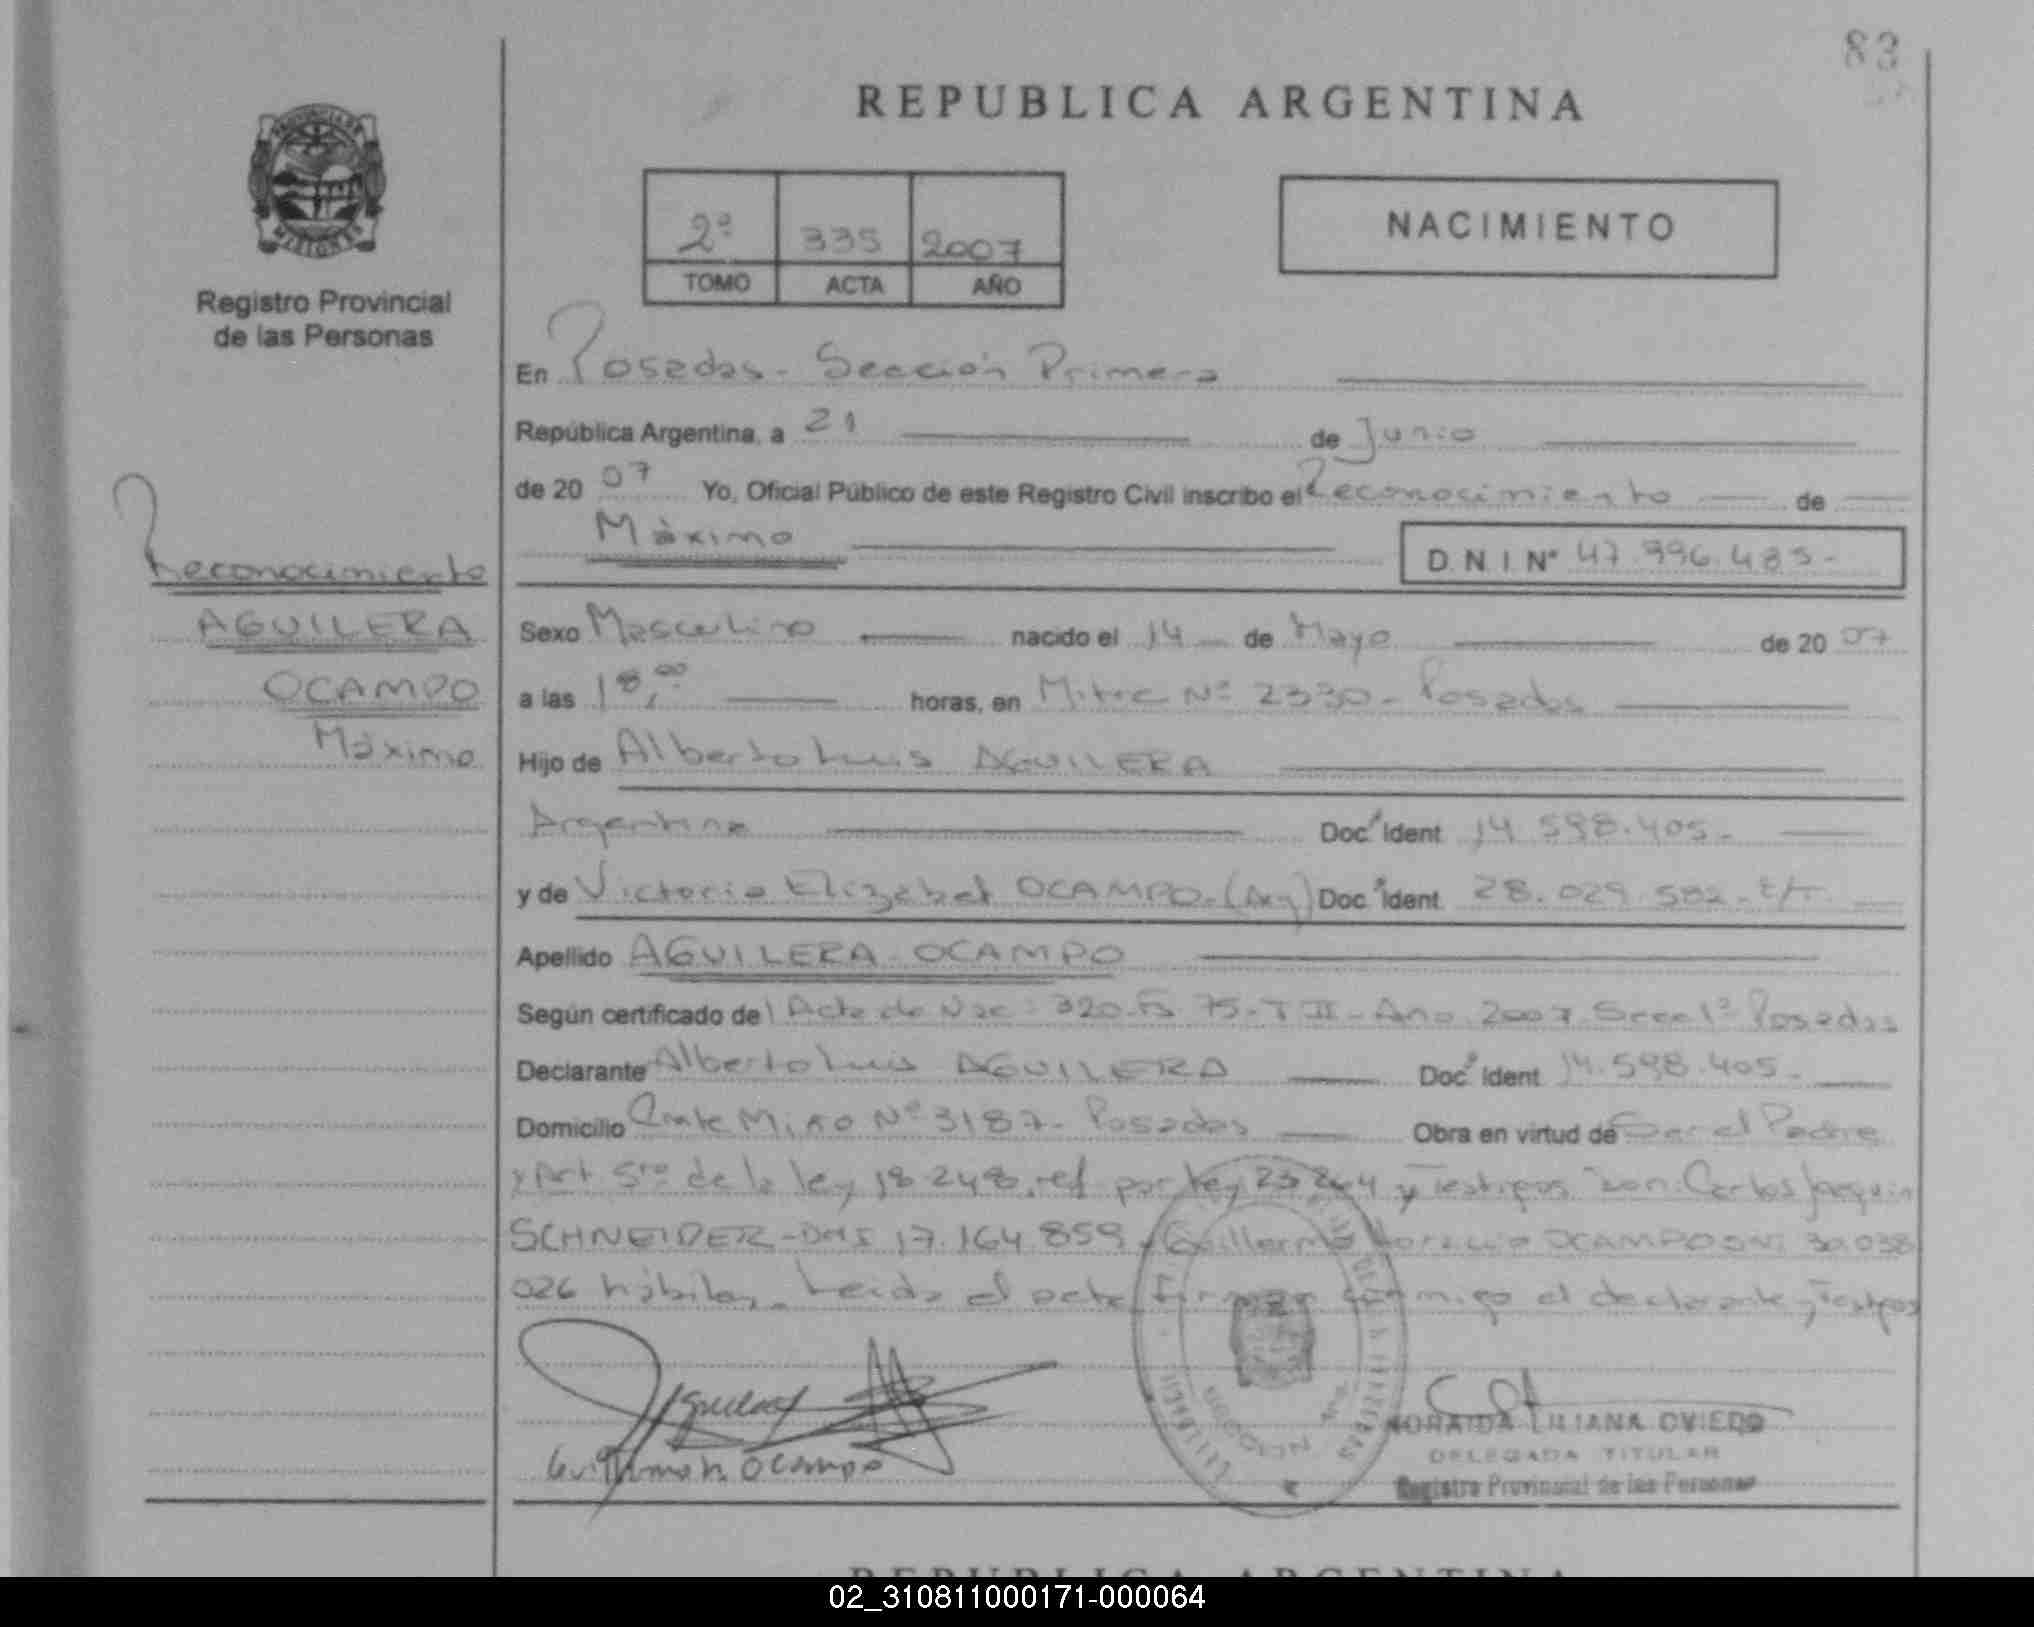 83
REPUBLICA ARGENTINA
PROVINCIA DE
MISIONES
Registro Provincial
de las Personas
2º 335 2007
TOMO ACTA AÑO
NACIMIENTO
En Posadas - Sección Primera
República Argentina, a 21 de Junio
de 20 07 Yo, Oficial Público de este Registro Civil inscribo el Reconocimiento de
Máximo
D. N. I. Nº 47.996.485-
Reconocimiento
AGUILERA
OCAMPO
Máximo
Sexo Masculino nacido el 14 de Mayo de 20 07
a las 18,00 horas, en Mitre Nº 2330 - Posadas
Hijo de Alberto Luis AGUILERA
Argentina Doc. Ident. 14.598.405-
y de Victoria Elizabet OCAMPO - (Arg) Doc. Ident. 28.029.582 -
Apellido AGUILERA OCAMPO
Según certificado del Acta de Nac: 320 - Fs 75 - T II - Año 2007 Secc 1ª Posadas
Declarante Alberto Luis AGUILERA Doc. Ident. 14.598.405-
Domicilio Nº 3187 - Posadas Obra en virtud de Ser el Padre
y Art. 5to de la ley 18.248, ref por ley 23264 y Testigos son: Carlos Joaquin
SCHNEIDER - DNI 17.164.859 - Guillermo Horacio OCAMPO DNI 30.038
026 hábiles. Leida el acta firman conmigo el declarante y Testigos
Guillermo H. Ocampo
ZORAIDA LILIANA OVIEDO
DELEGADA TITULAR
Registro Provincial de las Personas
REPUBLICA ARGENTINA
02_310811000171-000064